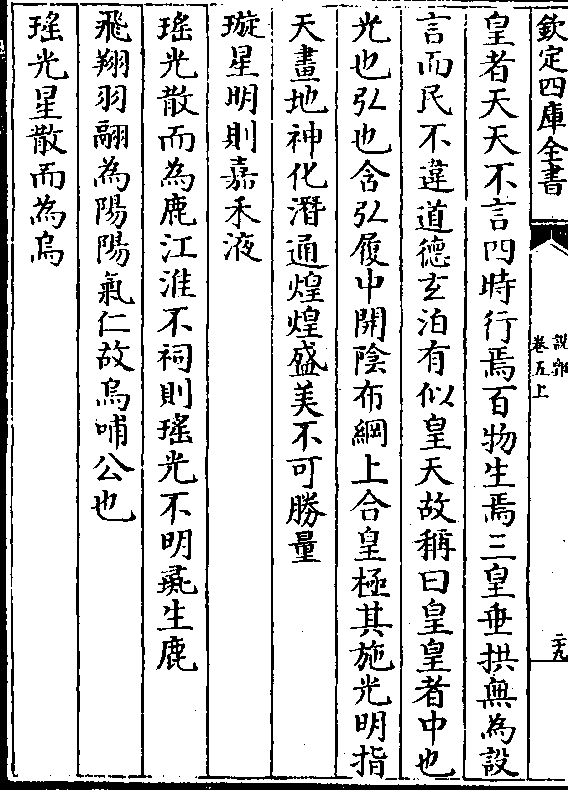 欽定四庫全書
說郛
卷五上
二九
皇者天天不言四時行焉百物生焉三皇垂拱無為設
言而民不違道德玄泊有似皇天故稱曰皇皇者中也
光也弘也含弘履中開陰布綱上合皇極其施光明指
天畫地神化潛通煌煌盛美不可勝量
璇星明則嘉禾液
瑤光散而為鹿江淮不祠則瑤光不明𪋻生鹿
飛翔羽翮為陽陽氣仁故烏哺公也
瑤光星散而為烏